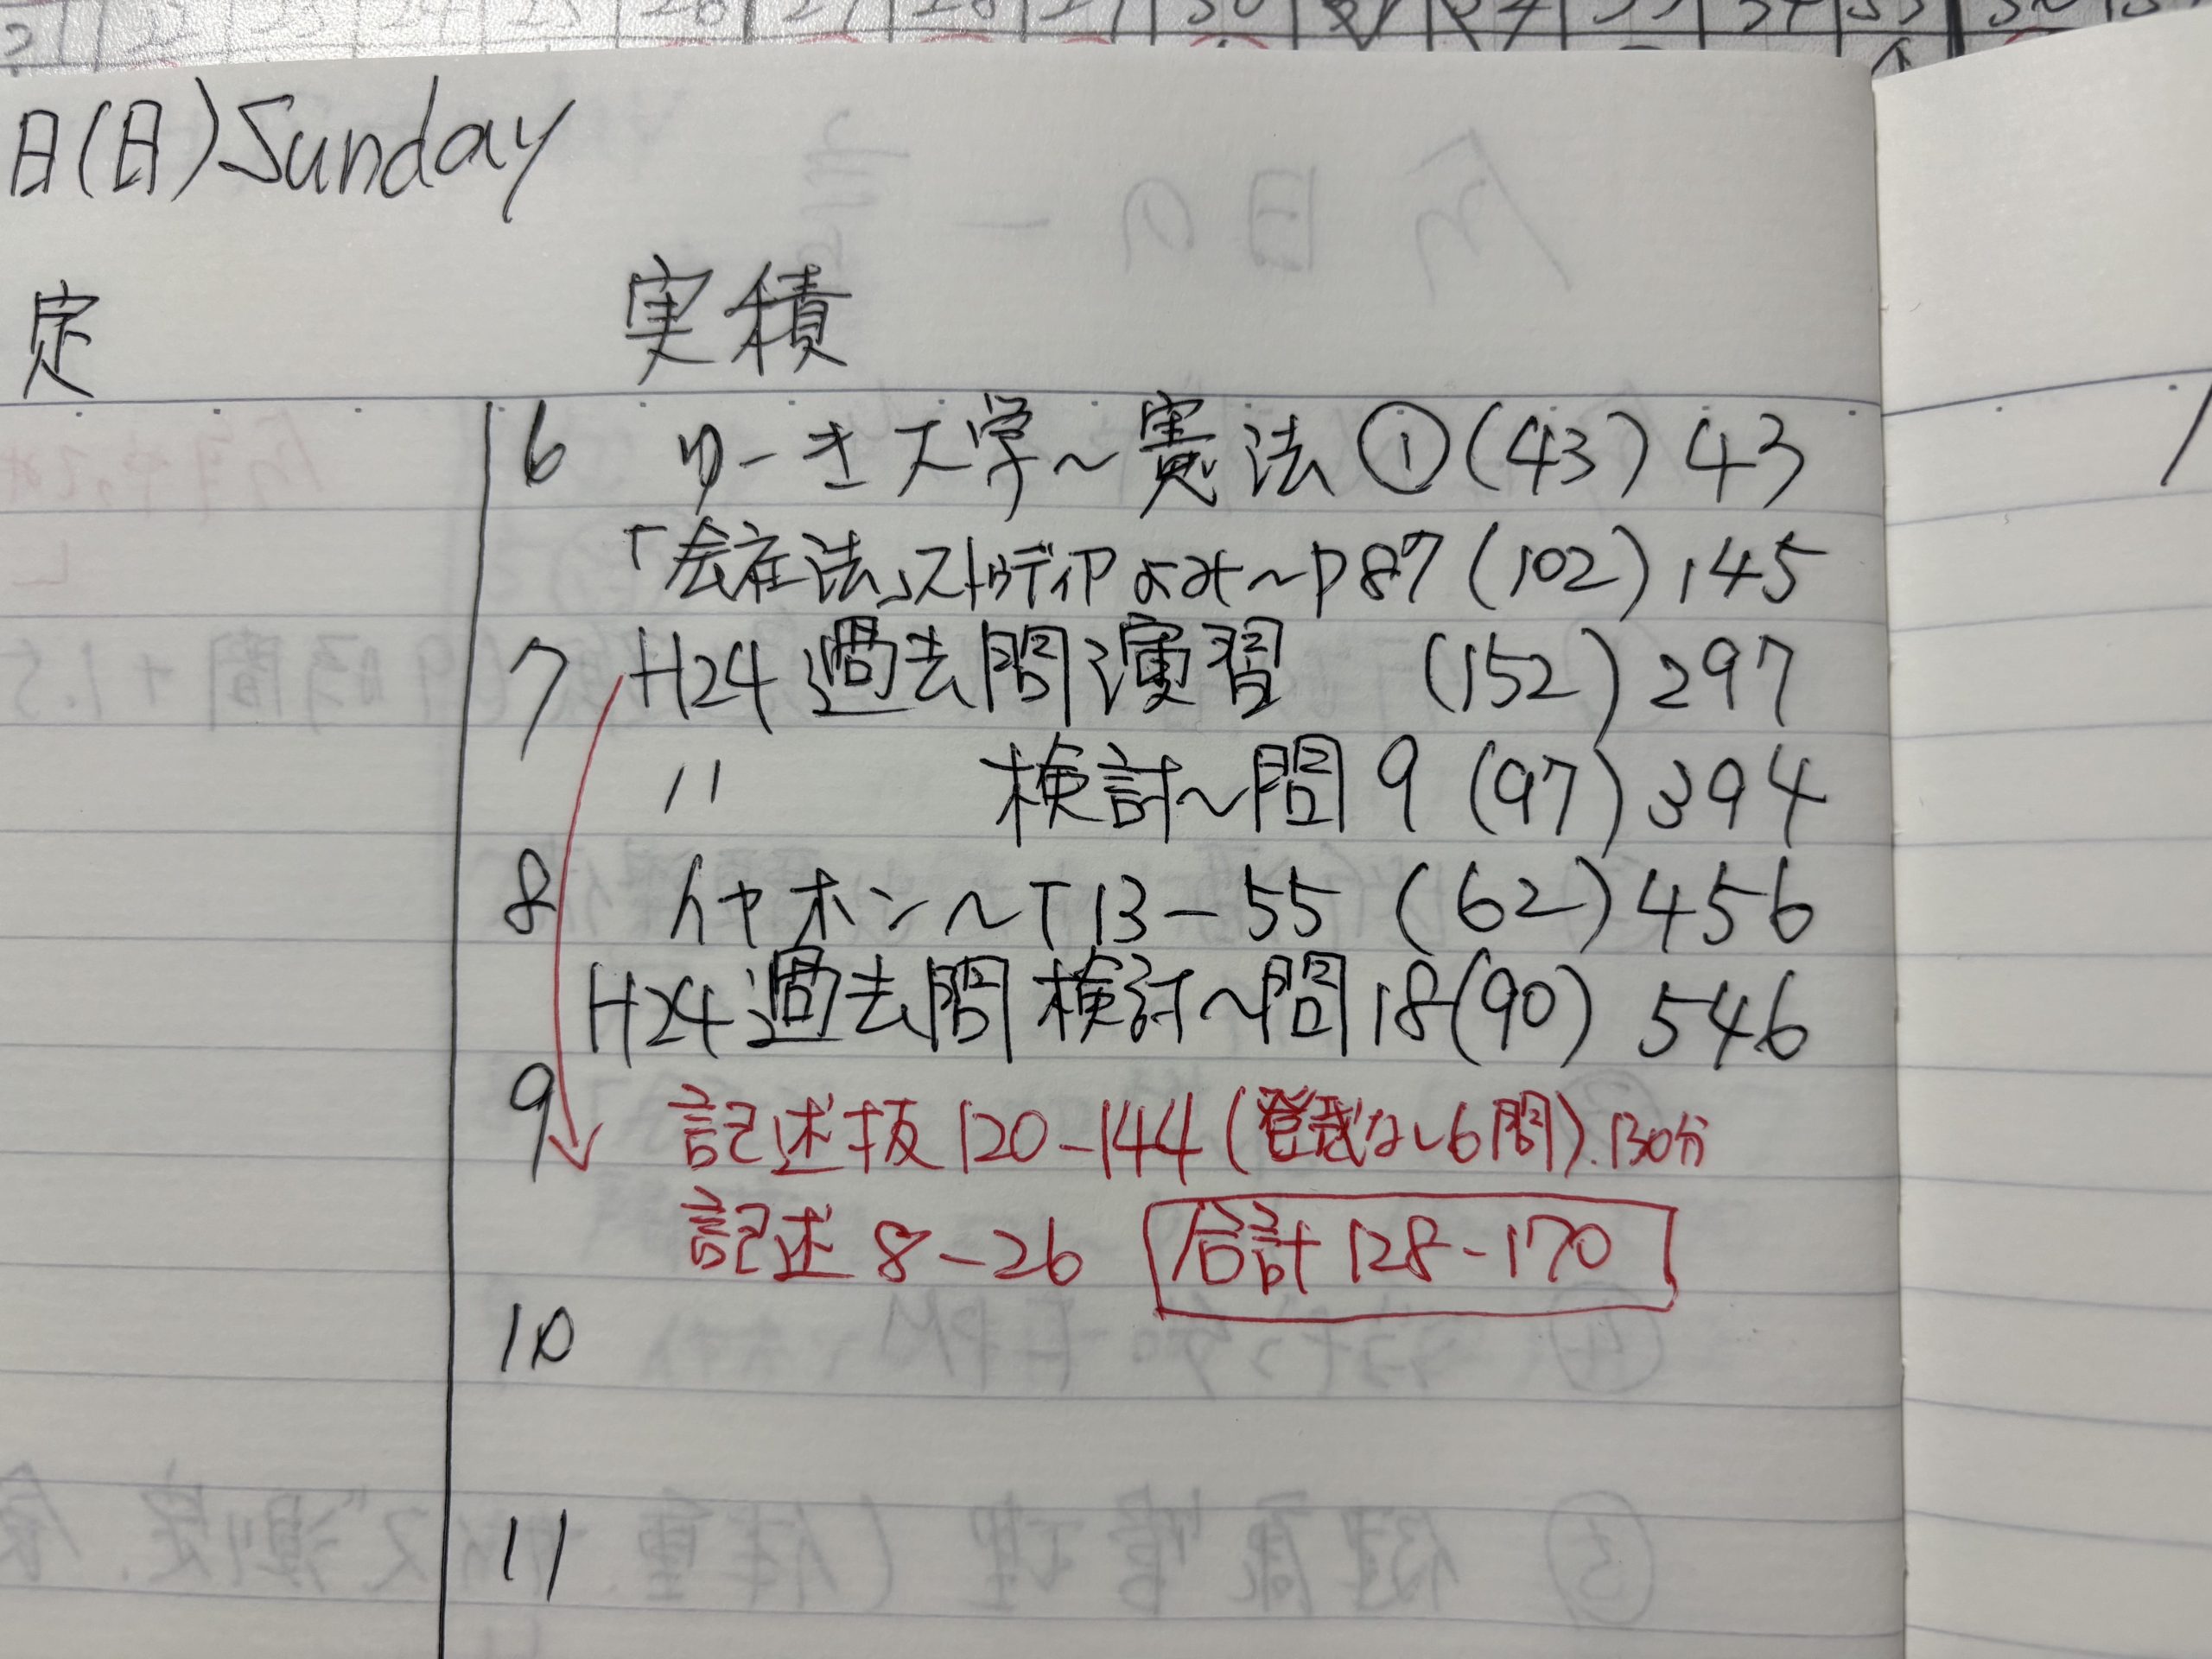 日(日)Sunday
定 実積
6 ゆーき大学～憲法①(43) 43
「会社法」ストゥディア よみ～P87 (102) 145
7 H24過去問演習 (152) 297
〃 検討～問9 (97) 394
8 イヤホン～T13-55 (62) 456
H24過去問検討～問18(90) 546
9 記述抜120-144(登載なし6問).130分
記述 8-26 合計128-170
10
11